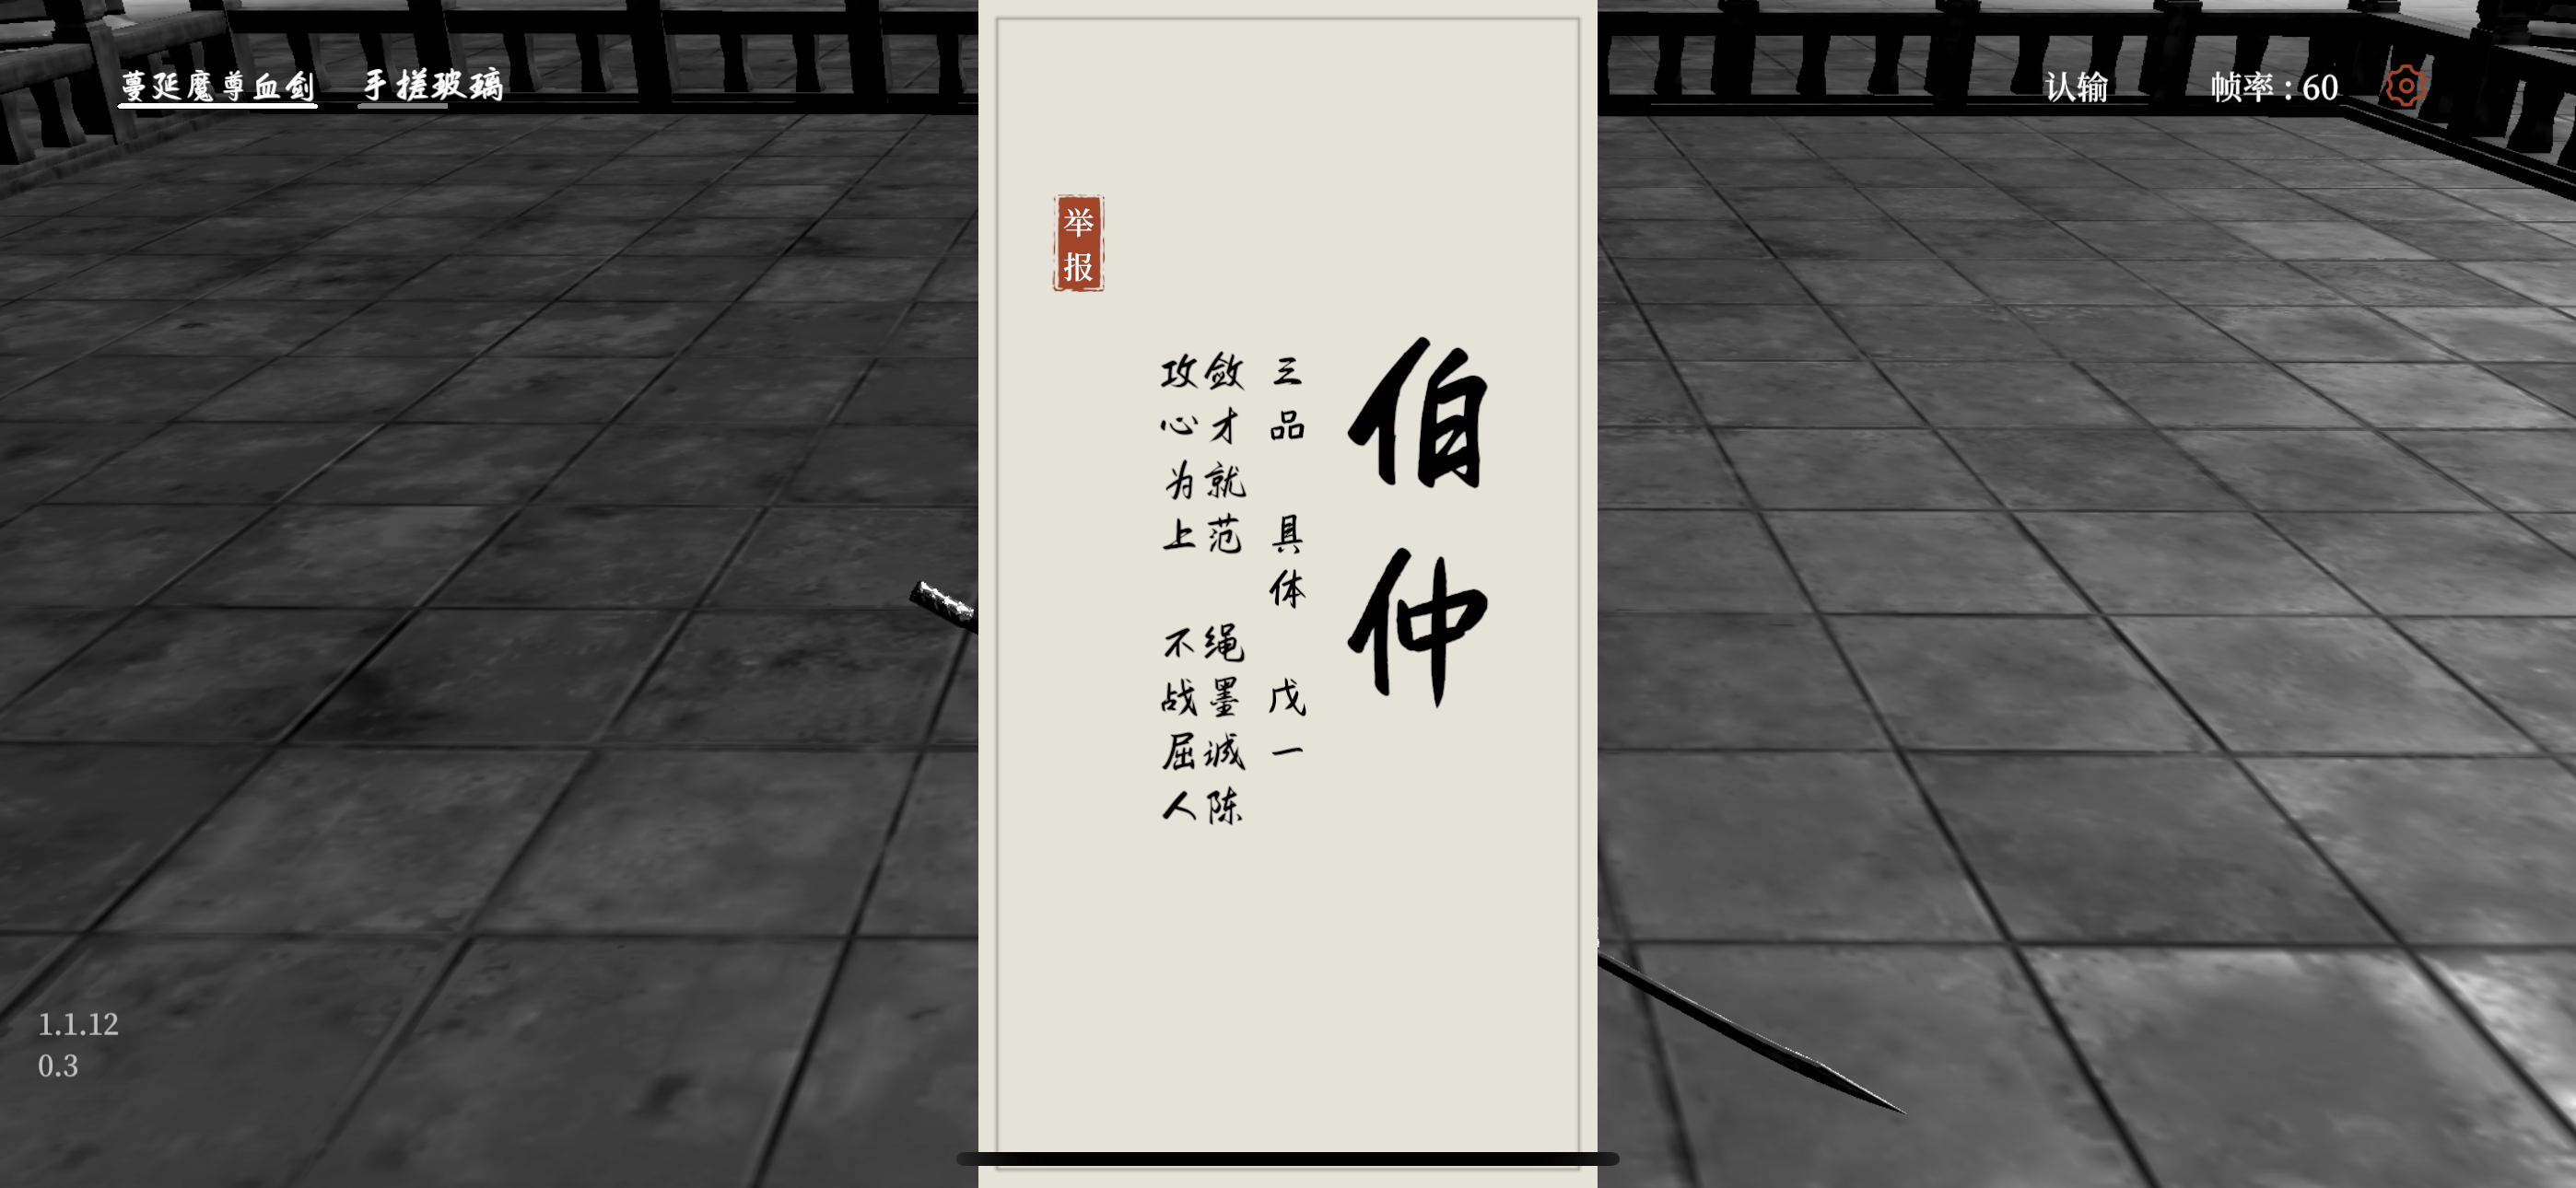 蔓延魔尊血剑
手搓玻璃
认输
帧率：60
伯仲
三品 具体 戊一
敛才就范 绳墨诚陈
攻心为上 不战屈人
举报
1.1.12
0.3